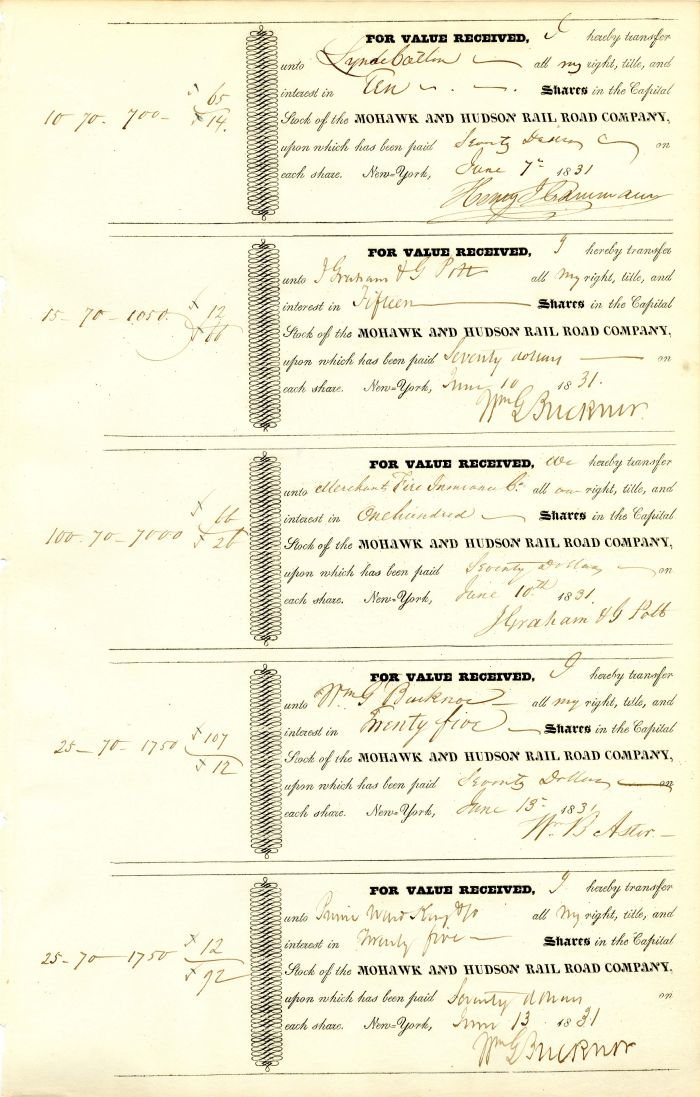 FOR VALUE RECEIVED, I hereby transfer
unto Lynde Catlin all my right, title, and
interest in Ten Shares in the Capital
10 - 70 - 700 - 65 14. Stock of the MOHAWK AND HUDSON RAIL ROAD COMPANY,
upon which has been paid Seventy on
each share. New-York, June 7th 1831
Henry J
FOR VALUE RECEIVED, I hereby transfer
unto J Graham & G Pott all my right, title, and
interest in Fifteen Shares in the Capital
15 - 70 - 1050 12 66 Stock of the MOHAWK AND HUDSON RAIL ROAD COMPANY,
upon which has been paid Seventy dollars on
each share. New-York, June 10 1831.
Wm G Bucknor.
FOR VALUE RECEIVED, We hereby transfer
unto Merchants Fire Insurance Co. all our right, title, and
interest in One hundred Shares in the Capital
100 - 70 - 7000 66 26 Stock of the MOHAWK AND HUDSON RAIL ROAD COMPANY,
upon which has been paid Seventy Dollars on
each share. New-York, June 10th 1831.
J Graham & G Pott
FOR VALUE RECEIVED, I hereby transfer
unto Wm G Bucknor all my right, title, and
interest in Twenty five Shares in the Capital
25 - 70 - 1750 107 12 Stock of the MOHAWK AND HUDSON RAIL ROAD COMPANY,
upon which has been paid Seventy Dollars on
each share. New-York, June 13th 1831
Wm B Astor -
FOR VALUE RECEIVED, I hereby transfer
unto Prime Ward King & Co all my right, title, and
interest in Twenty five - Shares in the Capital
25 - 70 - 1750 12 92 Stock of the MOHAWK AND HUDSON RAIL ROAD COMPANY,
upon which has been paid Seventy dollars on
each share. New-York, June 13 1831
Wm G Bucknor